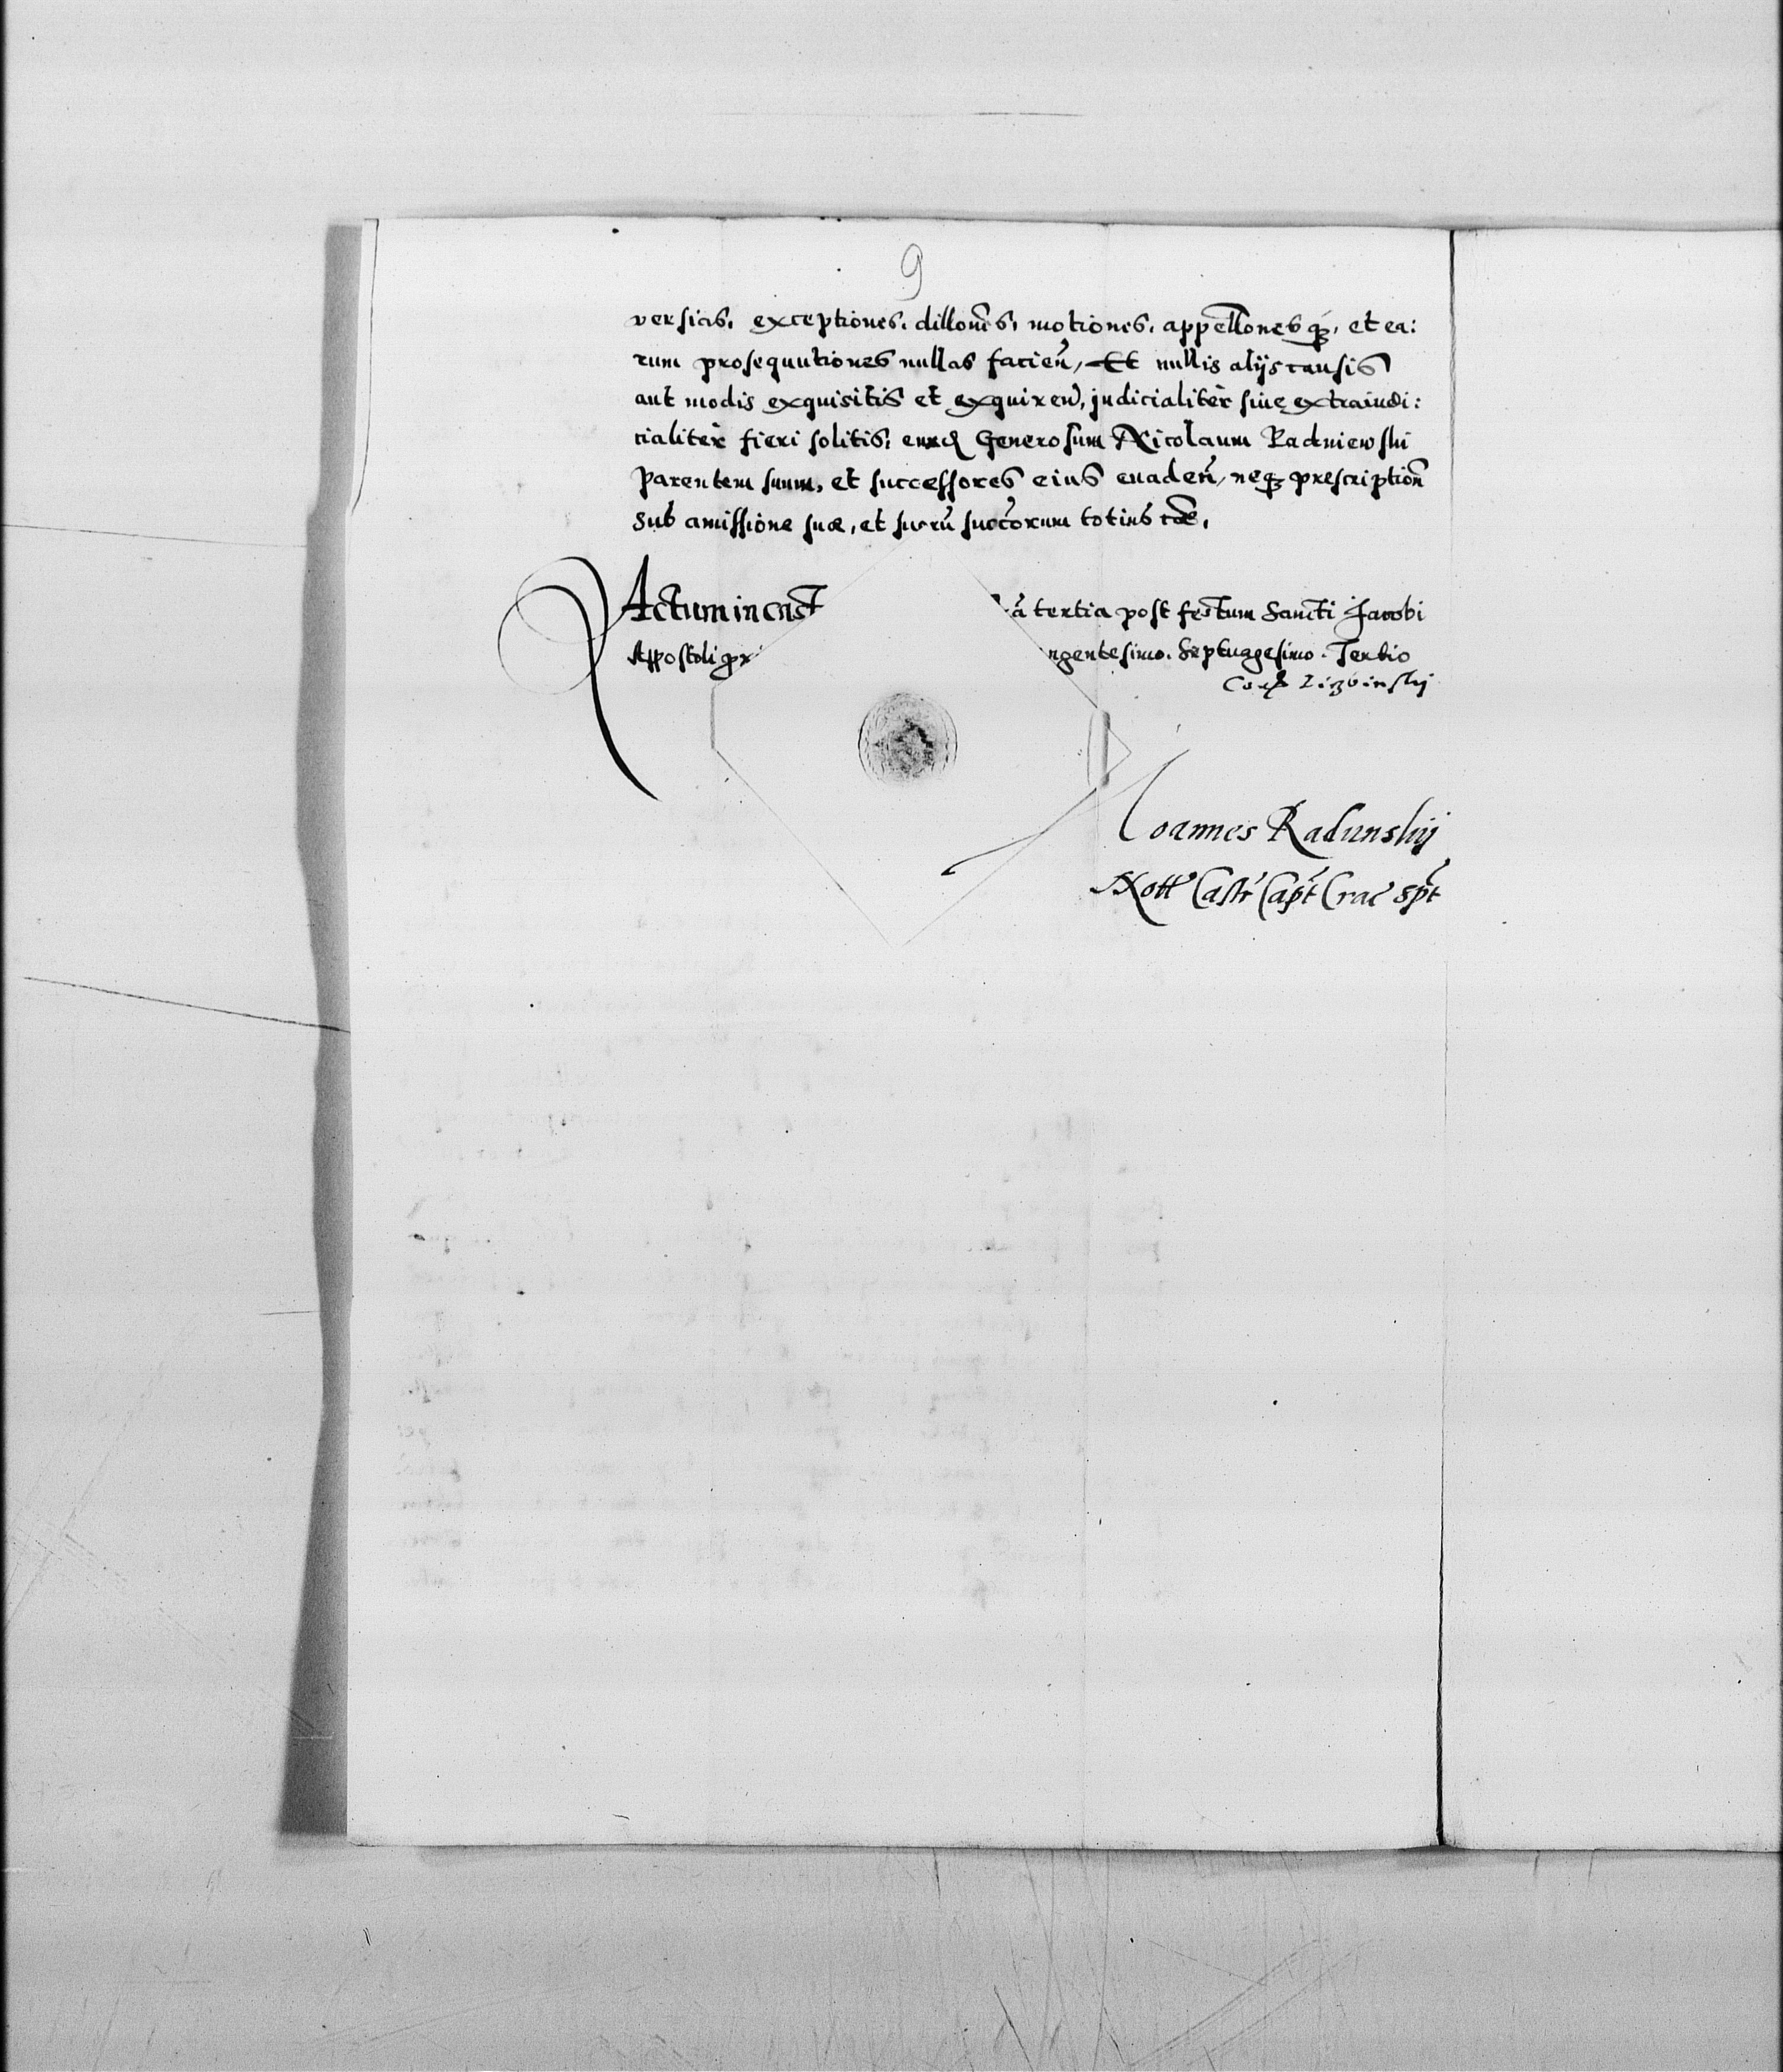 9
versias, exceptiones, dillones, motiones, appellonesq₃, et ea:
rum prosequutiones nullas facien̄, Et nullis alijs causis
aut modis exquisitis et exquiren̄, judicialiter siue extraiudi:
cialiter fieri solitis, Generosum Nicolaum Radniewski
Parentem suum, et successores eius euaden̄, neq₃ prescription̄
Sub amissione suæ, et suorū succorum totius
Actum in cast ā tertia post festum Sancti Jacobi
Appostoli pr ngentesimo. Septuagesimo. Tertio
Ioannes Radunskij
Nott Castr Capt Crac Spt